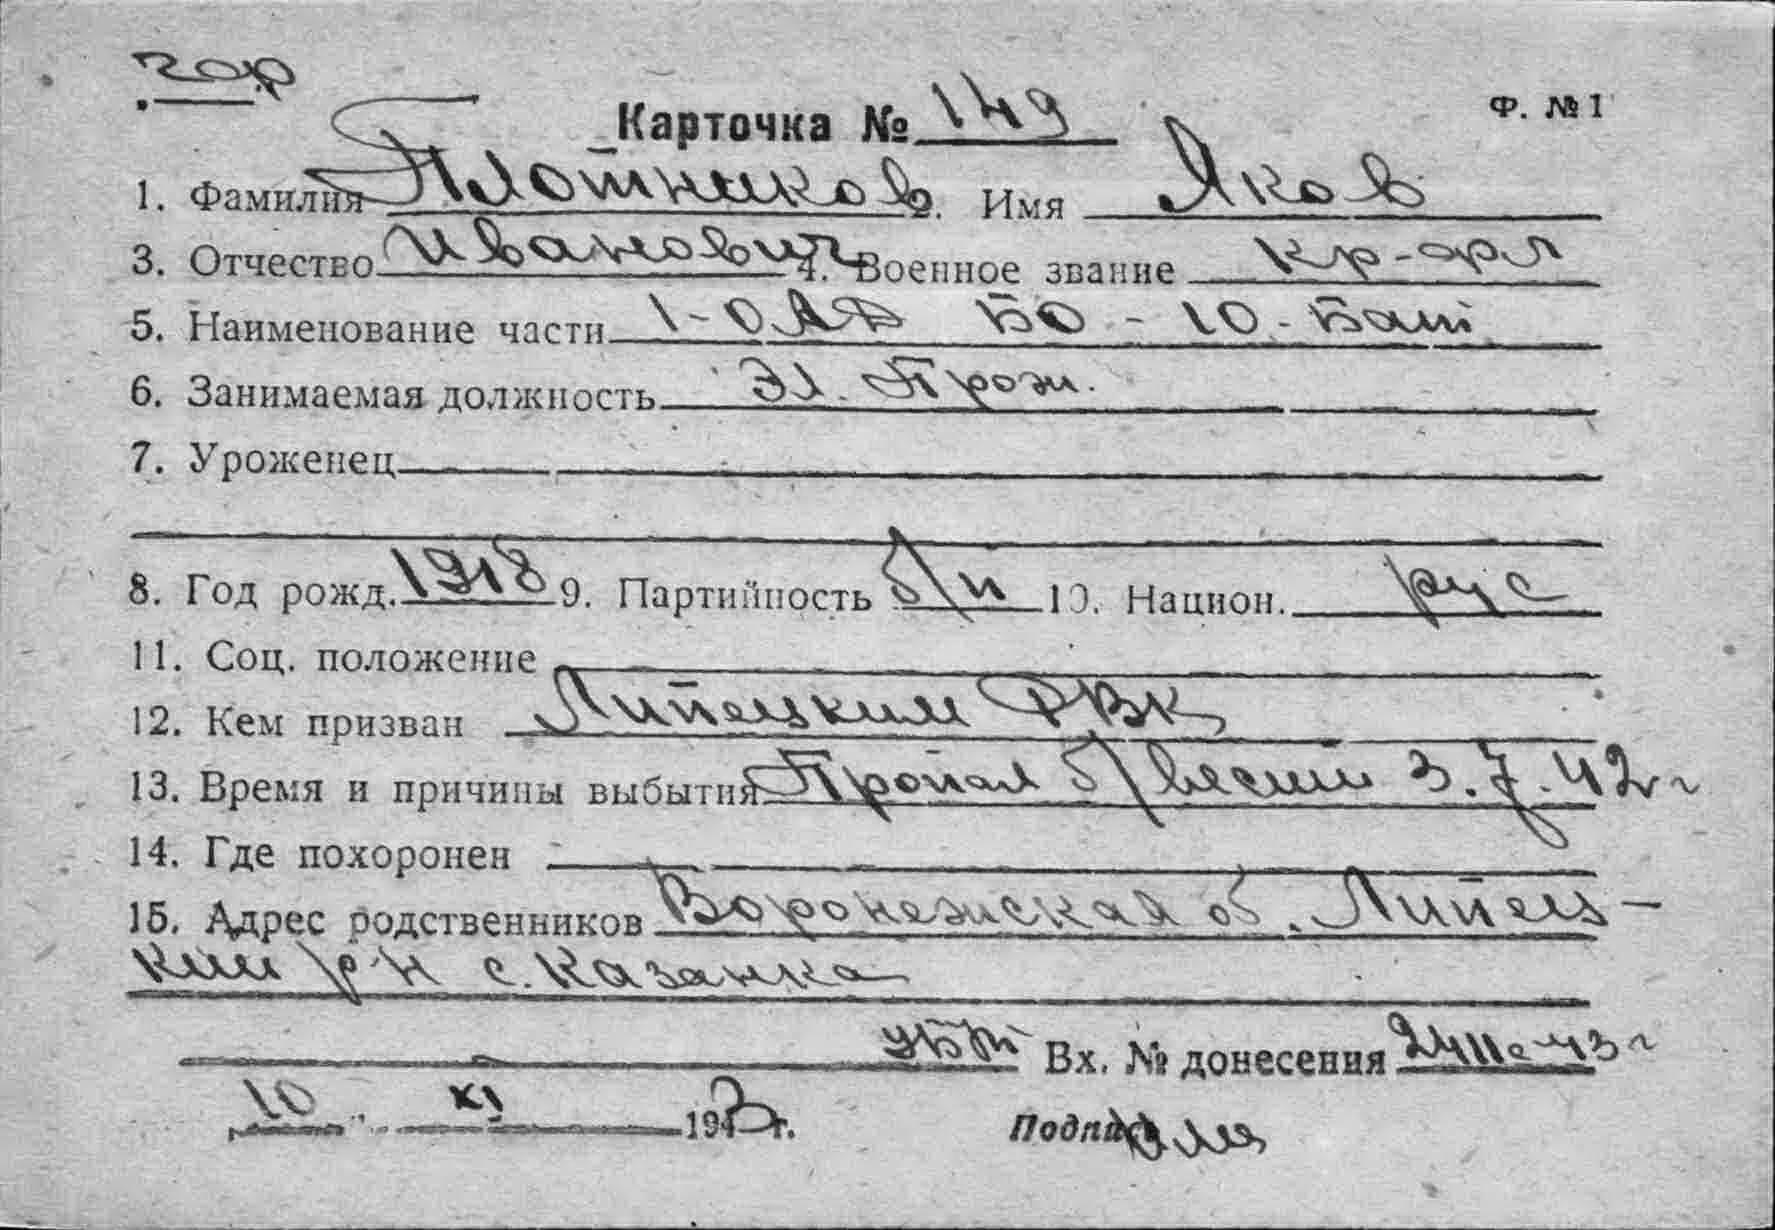 гор
Карточка № 149 Ф. № 1
1. Фамилия Плотников 2. Имя Яков
3. Отчество Иванович 4. Военное звание кр-арм
5. Наименование части 1-ОАД БО - 10 - Бат
6. Занимаемая должность Эл. Прож.
7. Уроженец
8. Год рожд. 1918 9. Партийность б/п 10. Национ. рус
11. Соц. положение
12. Кем призван Липецким РВК
13. Время и причины выбытия Пропал б/вести 3.7.42 г
14. Где похоронен
15. Адрес родственников Воронежская об. Липец-
кий р-н с. Казанка
Вх. № донесения
10 XI 1943 г.
Подпись